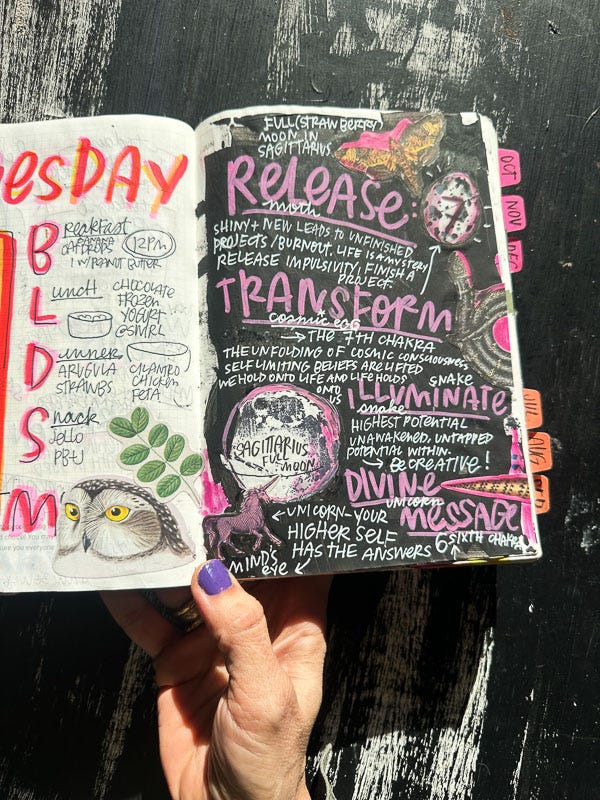 esDAY
Breakfast
12PM
1 W/PEANUT BUTTER
Lunch
CHOCOLATE
FROZEN
YOGURT
Dinner
ARUGULA
STRAWBS
CILANTRO
CHICKEN
FETA
Snack
Jello
PB+J
M
sure you everyone
FULL (STRAWBERRY)
MOON IN
SAGITTARIUS
RELEASE:
moth
7
SHINY + NEW LEADS TO UNFINISHED
PROJECTS / BURNOUT. LIFE IS A MYSTERY
RELEASE IMPULSIVITY, FINISH A
PROJECT.
TRANSFORM
cosmic egg
→ THE 7TH CHAKRA
THE UNFOLDING OF COSMIC CONSCIOUSNESS
SELF LIMITING BELIEFS ARE LIFTED
WE HOLD ONTO LIFE AND LIFE HOLDS
ONTO
US
SNAKE
ILLUMINATE
snake
HIGHEST POTENTIAL
UNAWAKENED, UNTAPPED
POTENTIAL WITHIN.
→ BE CREATIVE!
SAGITTARIUS
FULL MOON
DIVINE
unicorn
MESSAGE
← UNICORN - YOUR
HIGHER SELF
HAS THE ANSWERS
6 SIXTH CHAKRA
MIND'S
eye
OCT
NOV
DEC
JUL
AUG